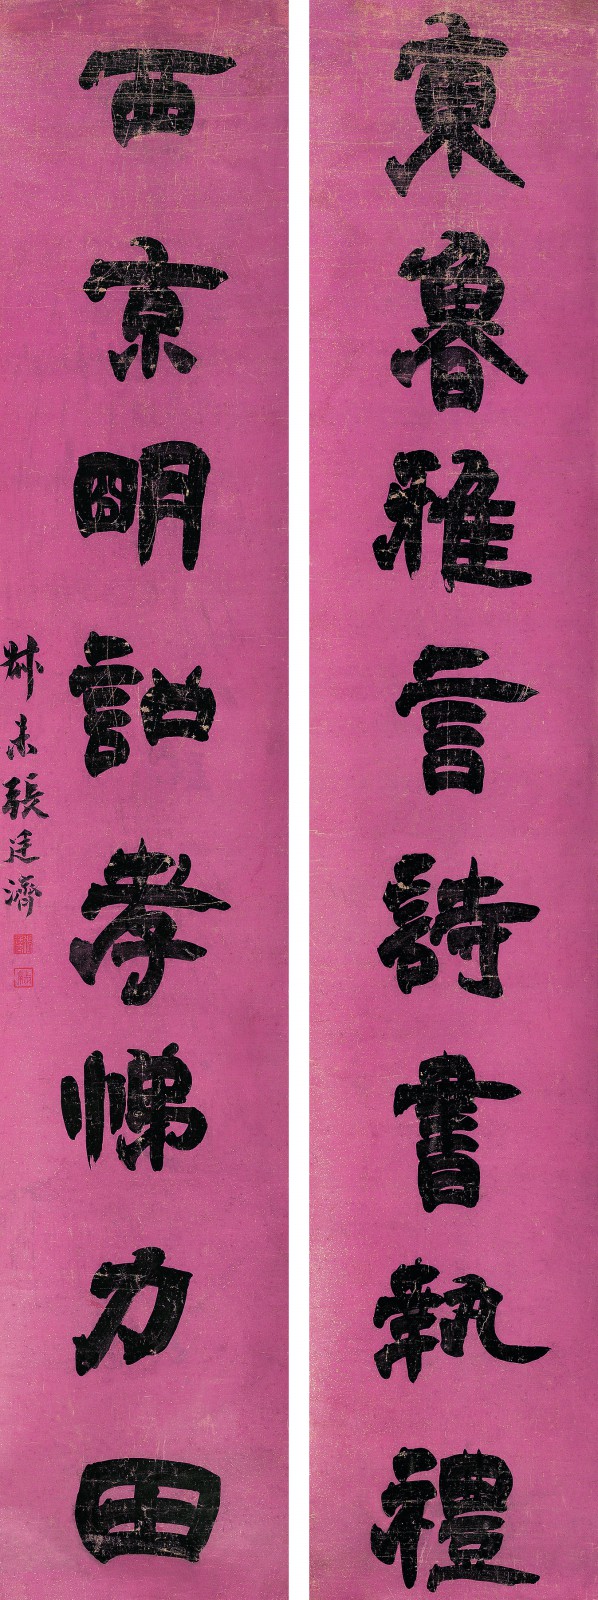 東魯雅言詩書執禮
西京明詔孝悌力田
叔未張廷濟